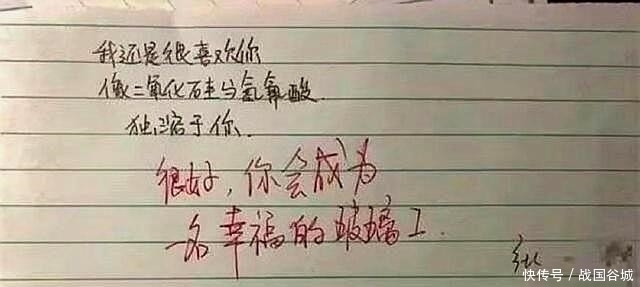 我还是很喜欢你
像二氧化硅与氢氟酸
独溶于你.
很好，你会成为
一名幸福的玻璃工.
快传号／战国谷城